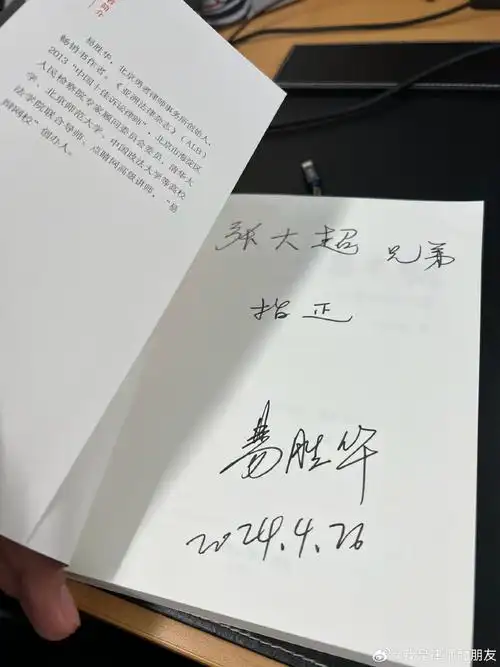 者简介
易胜华，北京勇者律师事务所创始人，
畅销书作者。《亚洲法律杂志》（ALB）
2013“中国十佳诉讼律师”，北京市海淀区
人民检察院专家顾问委员会委员，清华大
学、北京师范大学、中国政法大学等高校
法学院联合导师，点睛网高级讲师，“易
辩网校”创办人。
张大超 兄弟
指正
易胜华
2024.4.26